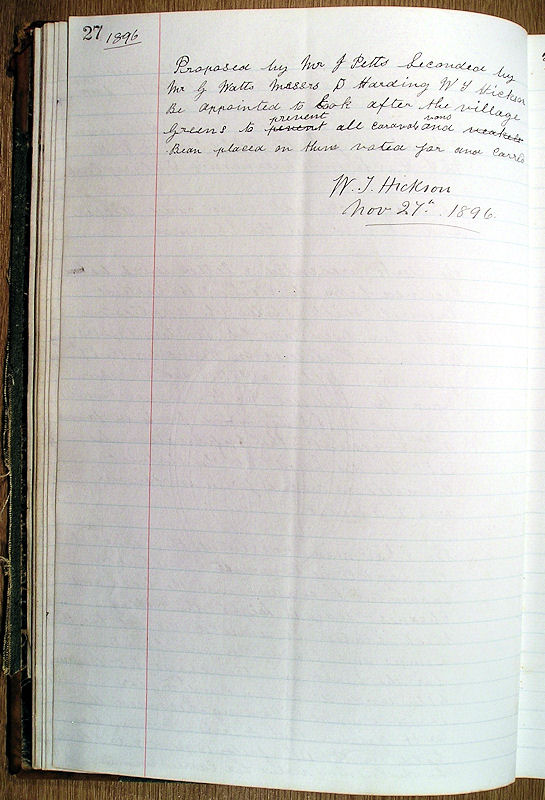 27 1896
Proposed by Mr J Petts Seconded by
Mr G Watts Messrs D Harding W T Hickson
Be appointed to look after the village
prevent vans
Greens to pevent all caravals and
Bean placed on them voted for and carrid
W. T. Hickson
Nov 27th. 1896.